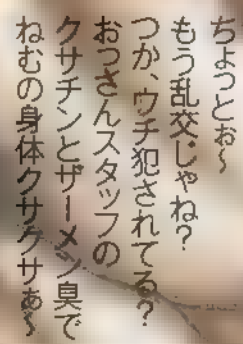 ちょっとぉ～
もう乱交じゃね？
つか、ウチ犯されてる？
おっさんスタッフの
クサチンとザーメン臭で
ねむの身体クサクサぁ～